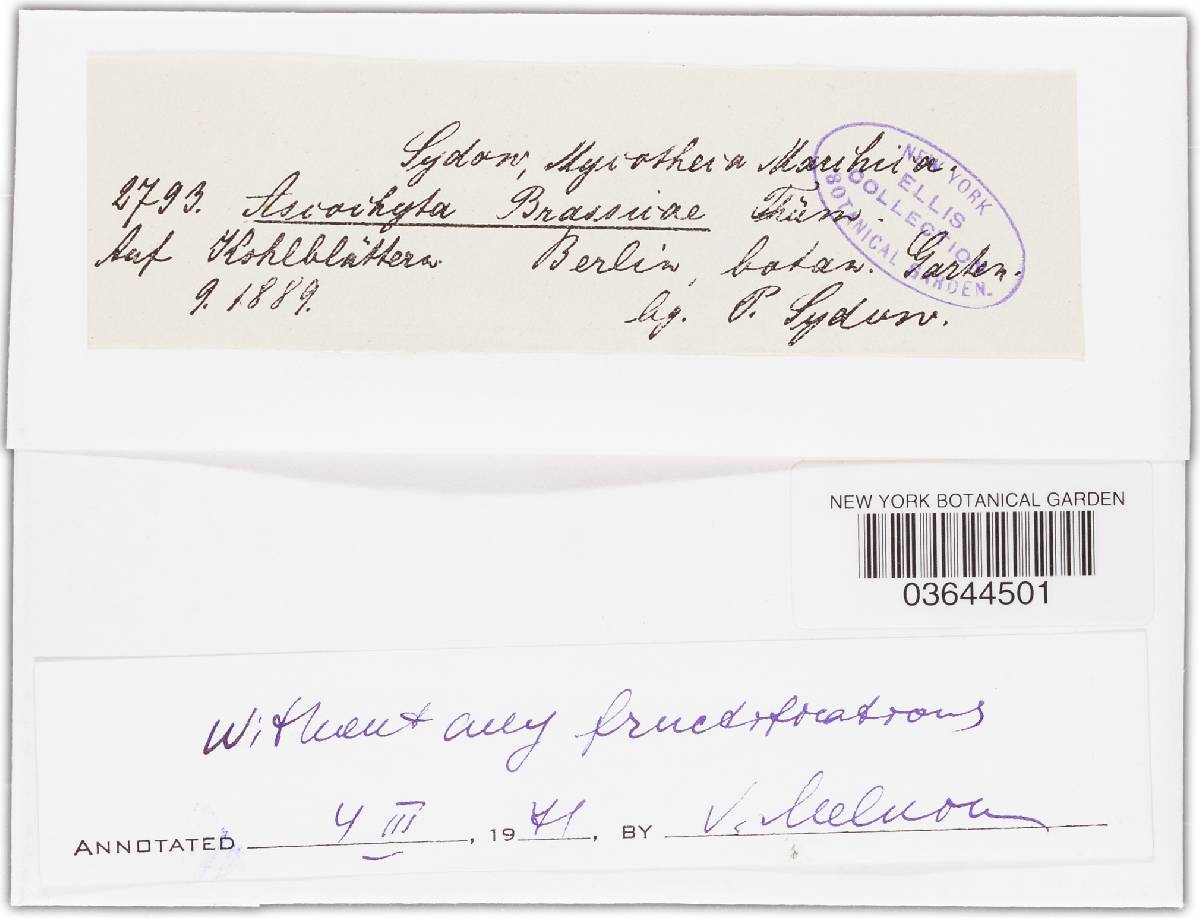 Sydow, Mycotheca Marchica.
2793. Ascochyta Brassicae Thüm.
Auf Kohlblättern Berlin, botan. Garten.
9. 1889. lg. P. Sydow.
NEW YORK
ELLIS
COLLECTION
BOTANICAL GARDEN.
NEW YORK BOTANICAL GARDEN
03644501
Without any fructifications
ANNOTATED 4 III, 1971, BY V. Melnik